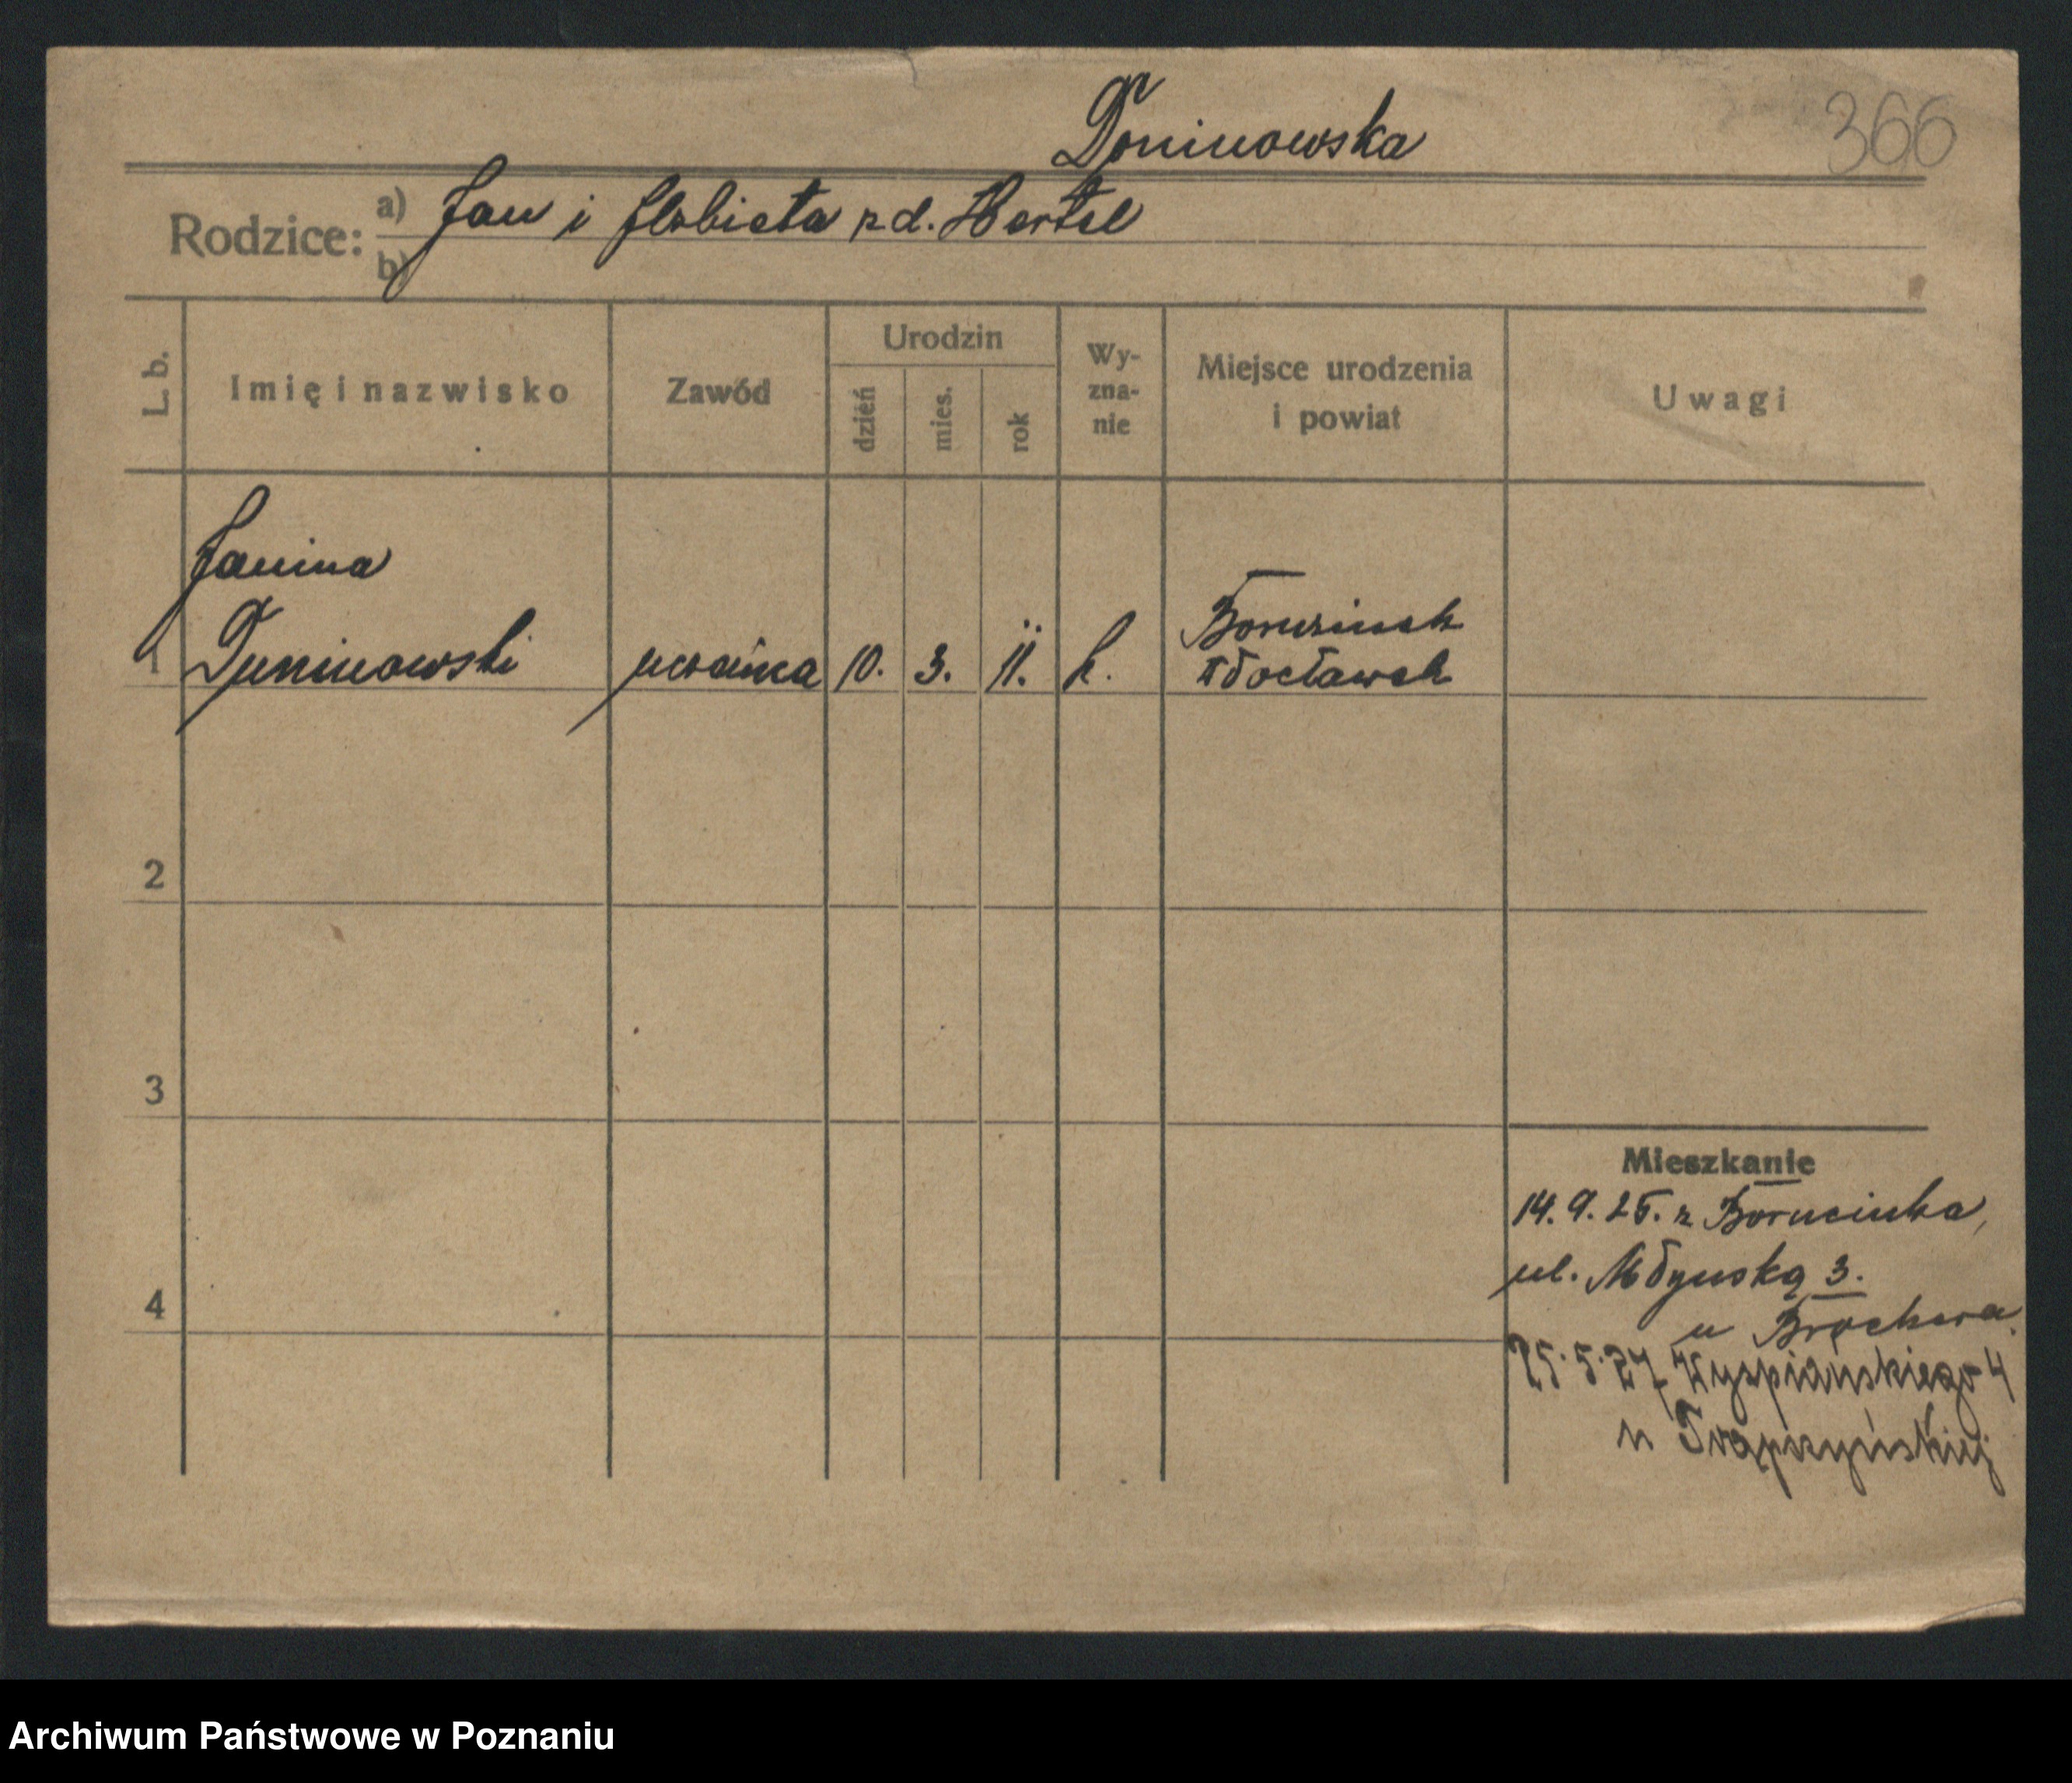 Doninowska
366
Rodzice: a) Jan i Elzbieta zd. Hertel
b)
L. b.
Imię i nazwisko
Zawód
Urodzin
dzień
mies.
rok
Wy-
zna-
nie
Miejsce urodzenia
i powiat
Uwagi
Janina
1 Duninowski uczenica 10. 3. 11. k.
Włocławek
2
3
4
Mieszkanie
14. 9. 25. z Borucinka,
ul. Młyńska 3.
u Brochwa.
25.5.27 Wyspiańskiego 4
u Trąpczyńskiej
Archiwum Państwowe w Poznaniu